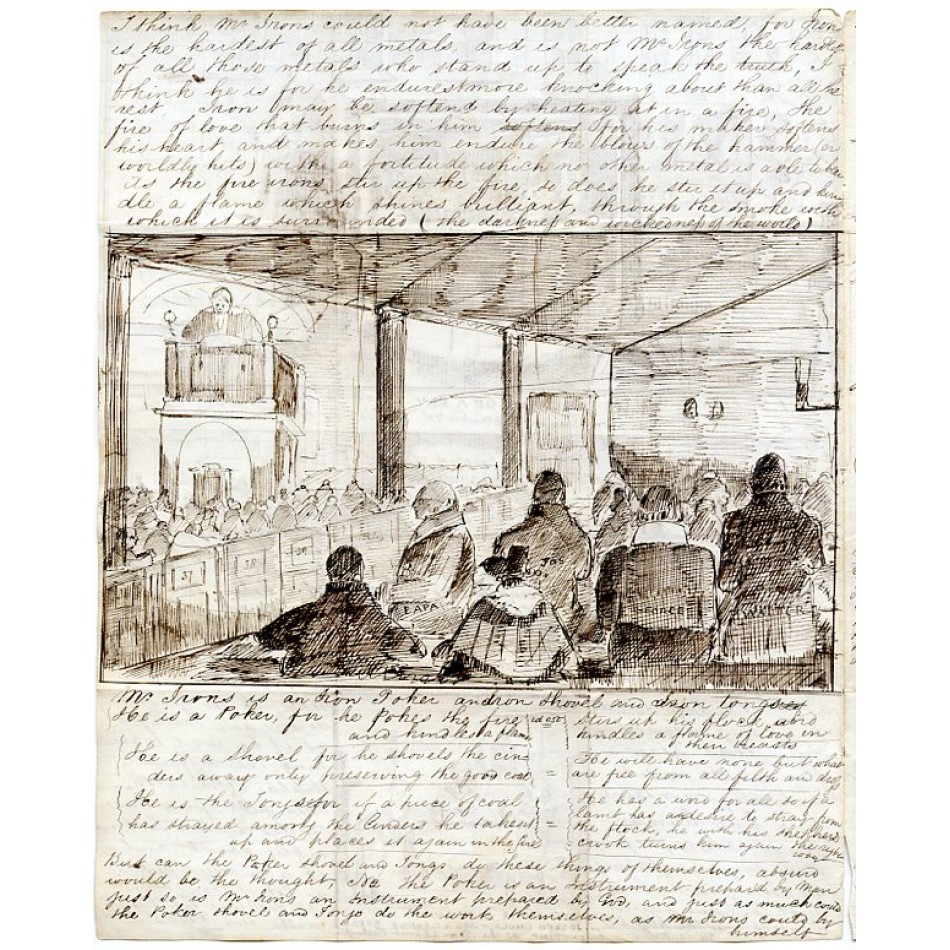 I think Mr Irons could not have been better named, for Iron
is the hardest of all metals, and is not Mr Irons the hardest
of all those metals who stand up to speak the truth, I
think he is for he endurest more knocking about than all the
rest, Iron (may be softend by heating it in a fire, the
fire of love that burns in him softens for his maker softens
his heart and makes him endure the blows of the hammer (or
worldly hits) with a fortitude which no other metal is able to bear
As the fire irons stir up the fire, so does he stir it up and kin
dle a flame which shines brilliant, through the smoke with
which it is surrounded (the darkness and wickedness of the world)
37
38
39
PAPA
JOS
GEORGE
WALTER
Mr Irons is an Iron Poker an Iron Shovel and Iron tongs
He is a Poker, for he Pokes the fire
and kindles a flame
stirs up his flock and
kindles a flame of love in
their breasts
He is a Shovel for he shovels the cin
ders away only preserving the good coal
=
He will have none but what
are free from all filth and dross
He is the Tongs for if a piece of coal
has strayed among the Cinders he takes it
up and places it again in the fire
=
He has a word for all so if a
lamb has a desire to stray from
the flock, he with his shepherds
crook turns him again the right
way
But can the Poker shovel and Tongs do these things of themselves, absurd
would be the thought, No the Poker is an Instrument prepared by Man
just so is Mr Irons an Instrument prepared by God, and just as much could
the Poker shovel and Tongs do the work themselves, as Mr Irons could by
himself